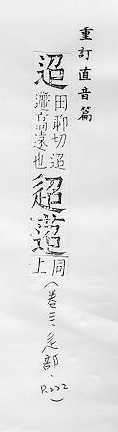 重訂直音篇
迢 田聊切迢
高遠也
同
上
(卷三·辵部·P.222)